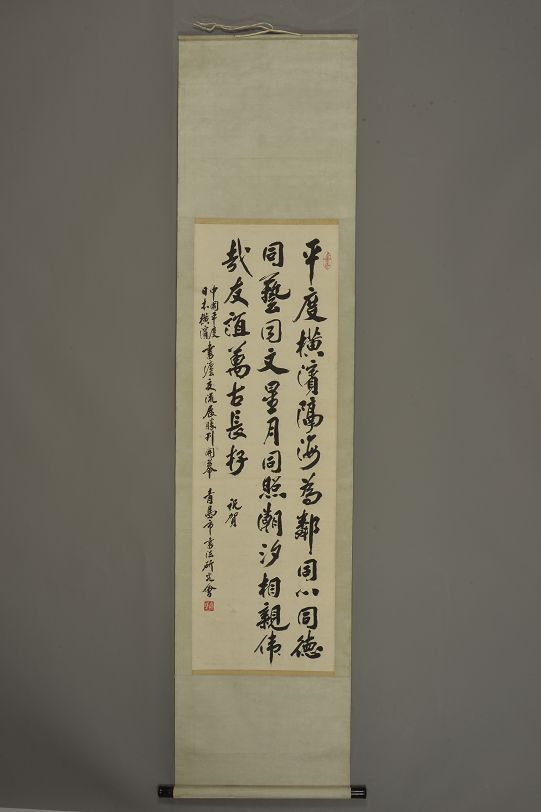 平度橫濱隔海為鄰同心同德
同藝同文星月同照潮汐相親伟
哉友誼萬古長存
祝賀
中國平度
日本橫濱
書法交流展勝利開幕 青島市書法研究會